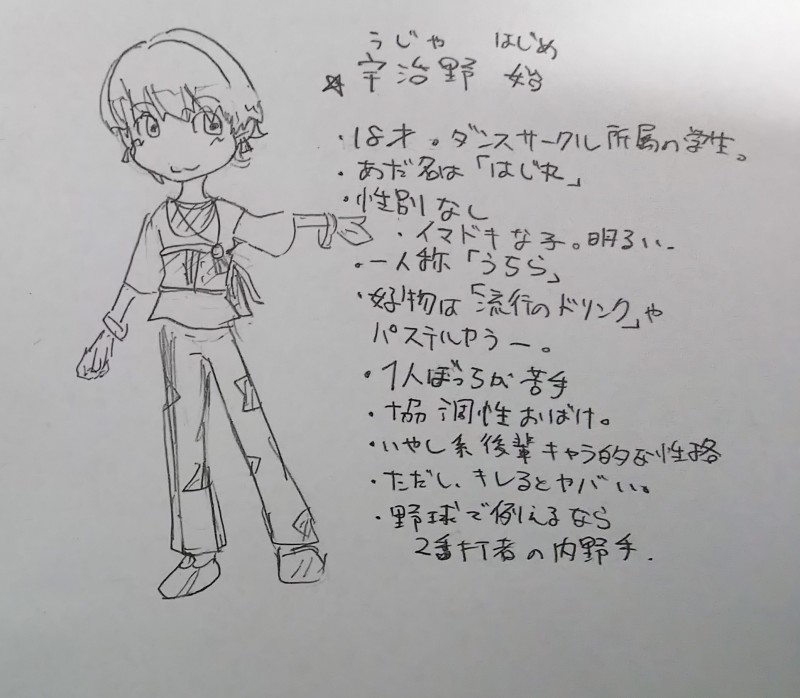 うじや はじめ
☆宇治野 始
・18才。ダンスサークル所属の学生。
・あだ名は「はじ丸」
・性別なし
・イマドキな子。明るい。
・一人称「うちら」
・好物は「流行のドリンク」や
パステルカラー。
・1人ぼっちが苦手
・協調性おばけ。
・いやし系後輩キャラ的な性格
・ただし、キレるとヤバい。
・野球で例えるなら
2番打者の内野手.